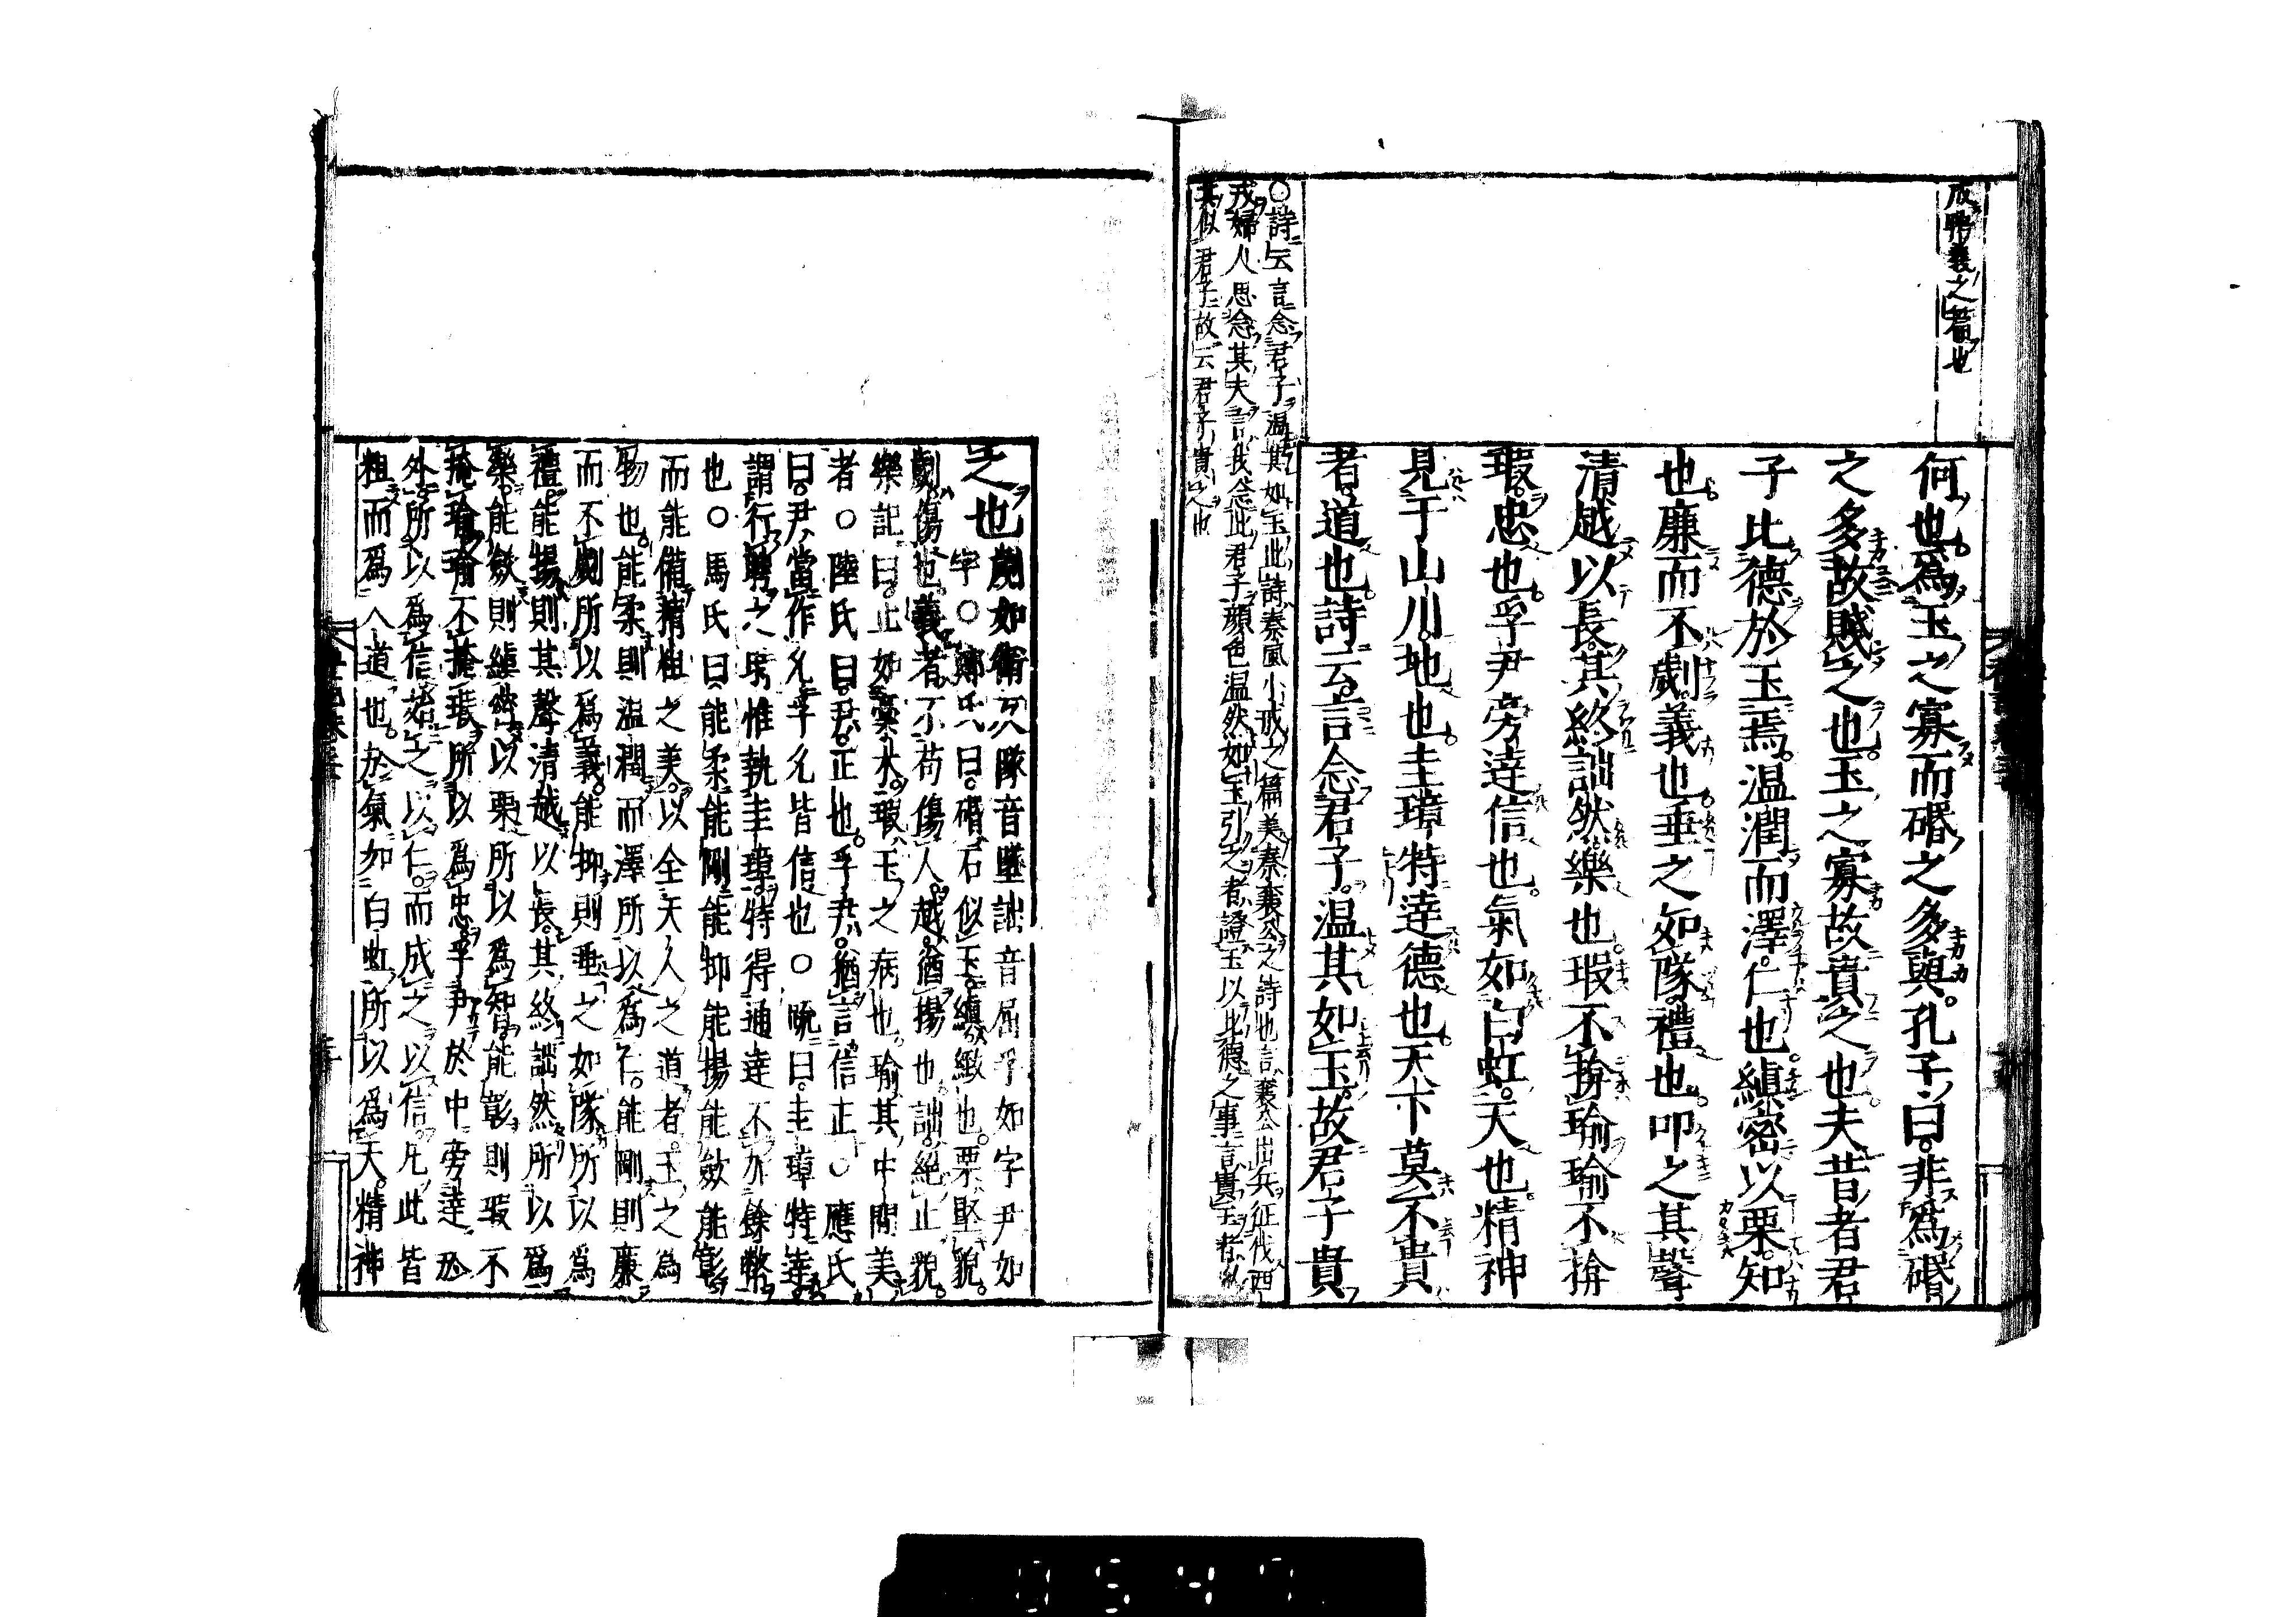 成聘義之者也
何也爲玉之寡而碈之多與孔子曰非爲碈
之多故賤之也玉之寡故貴之也夫昔者君
子比德於玉焉温潤而澤仁也縝密以栗知
也廉而不劌義也垂之如隊禮也叩之其聲
清越以長其終詘然樂也瑕不揜瑜瑜不揜
瑕忠也孚尹旁達信也氣如白虹天也精神
見于山川地也圭璋特達德也天下莫不貴
者道也詩云言念君子温其如玉故君子貴
○詩云言念君子温其如玉此詩秦風小戎之篇美秦襄公之詩也言襄公出兵征伐西
戎婦人思念其夫言我念此君子顔色温然如玉引之者證玉以比德之事言貴玉者以
其似君子故云君子貴之也
之也劌如衛反隊音墜詘音屈孚如字尹如
字○鄭氏曰碈石似玉縝緻也栗堅貌
劌傷也義者不苟傷人越猶揚也詘絶止貌
樂記曰止如槀木瑕玉之病也瑜其中間美
者○陸氏曰尹正也孚尹猶言信正○應氏
曰尹當作允孚允皆信也○疏曰圭璋特達
謂行聘之時惟執圭璋特得通達不加餘幣
也○馬氏曰能柔能剛能抑能揚能斂能彰
而能備精粗之美以全天人之道者玉之爲
物也能柔則温潤而澤所以爲仁能剛則廉
而不劌所以爲義能抑則垂之如隊所以爲
禮能揚則其聲清越以長其終詘然所以爲
樂能斂則縝密以栗所以爲智能彰則瑕不
掩瑜瑜不掩瑕所以爲忠孚尹於中旁達於
外所以爲信始之以仁而成之以信凡此皆
粗而爲人道也於氣如白虹所以爲天精神